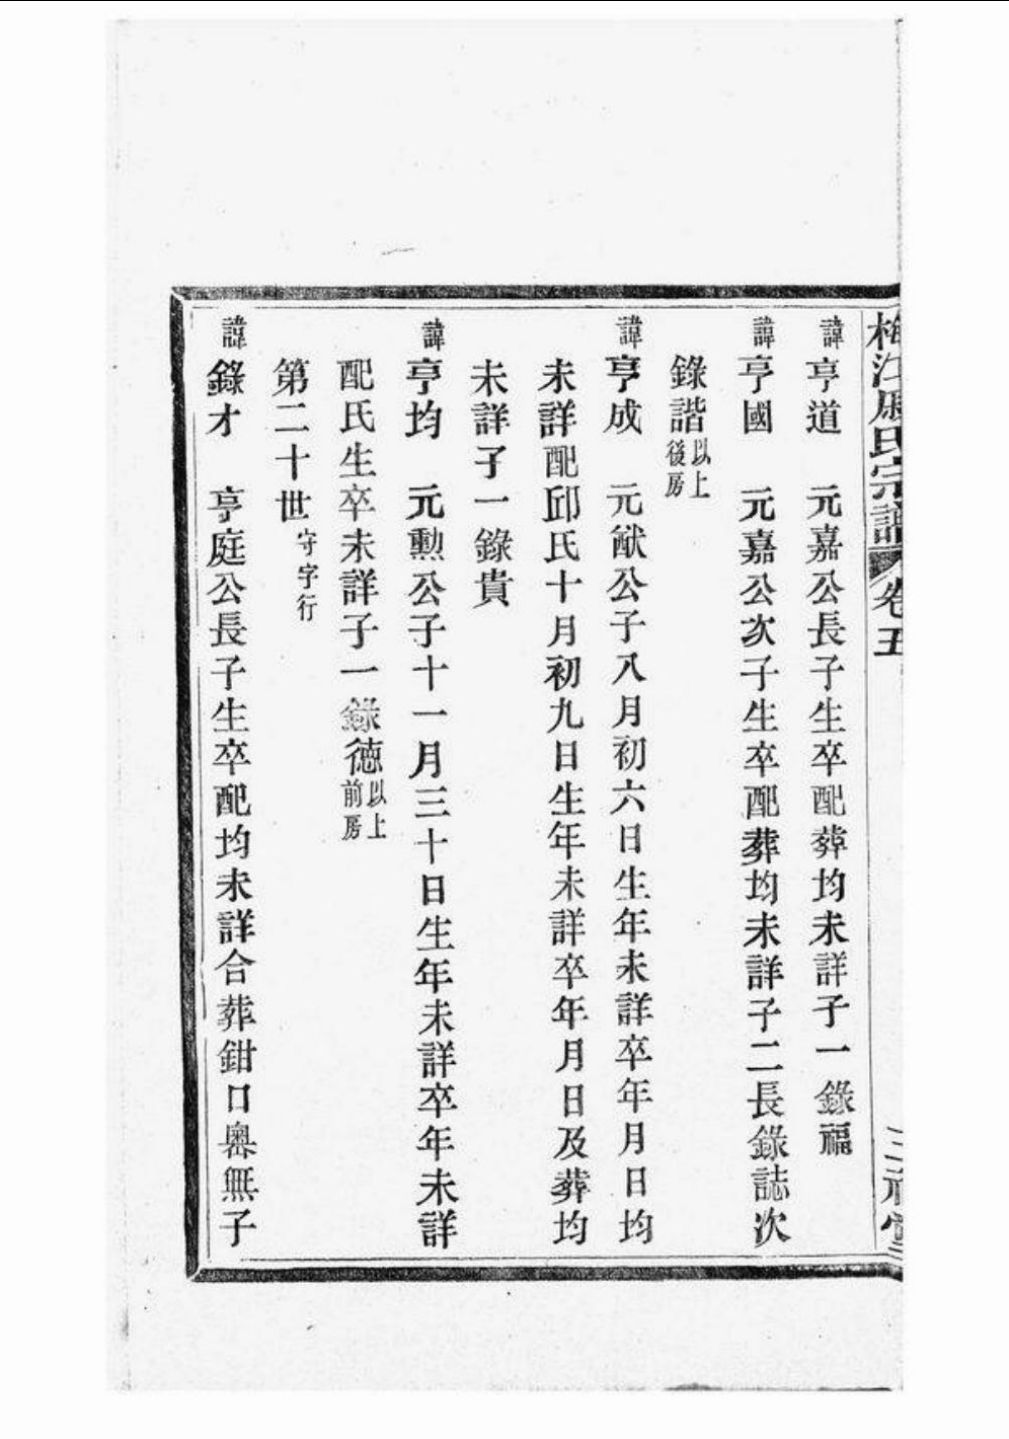 梅江周氏宗譜 卷五
諱亨道 元嘉公長子生卒配葬均未詳子一錄福
諱亨國 元嘉公次子生卒配葬均未詳子二長錄誌次
錄諧以上後房
諱亨成 元猷公子八月初六日生年未詳卒年月日均
未詳配邱氏十月初九日生年未詳卒年月日及葬均
未詳子一錄貴
諱亨均 元勲公子十一月三十日生年未詳卒年未詳
配氏生卒未詳子一錄德以上前房
第二十世守字行
諱錄才 亨庭公長子生卒配均未詳合葬鉗口㠗無子